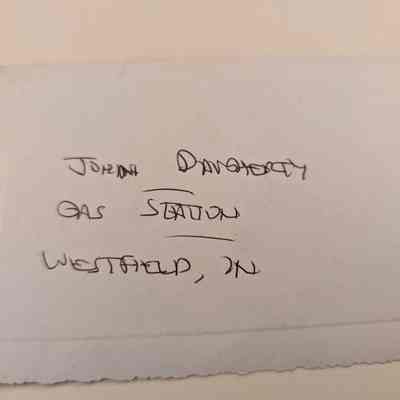 JORDAN DAUGHERTY
GAS STATION
WESTFIELD, IN